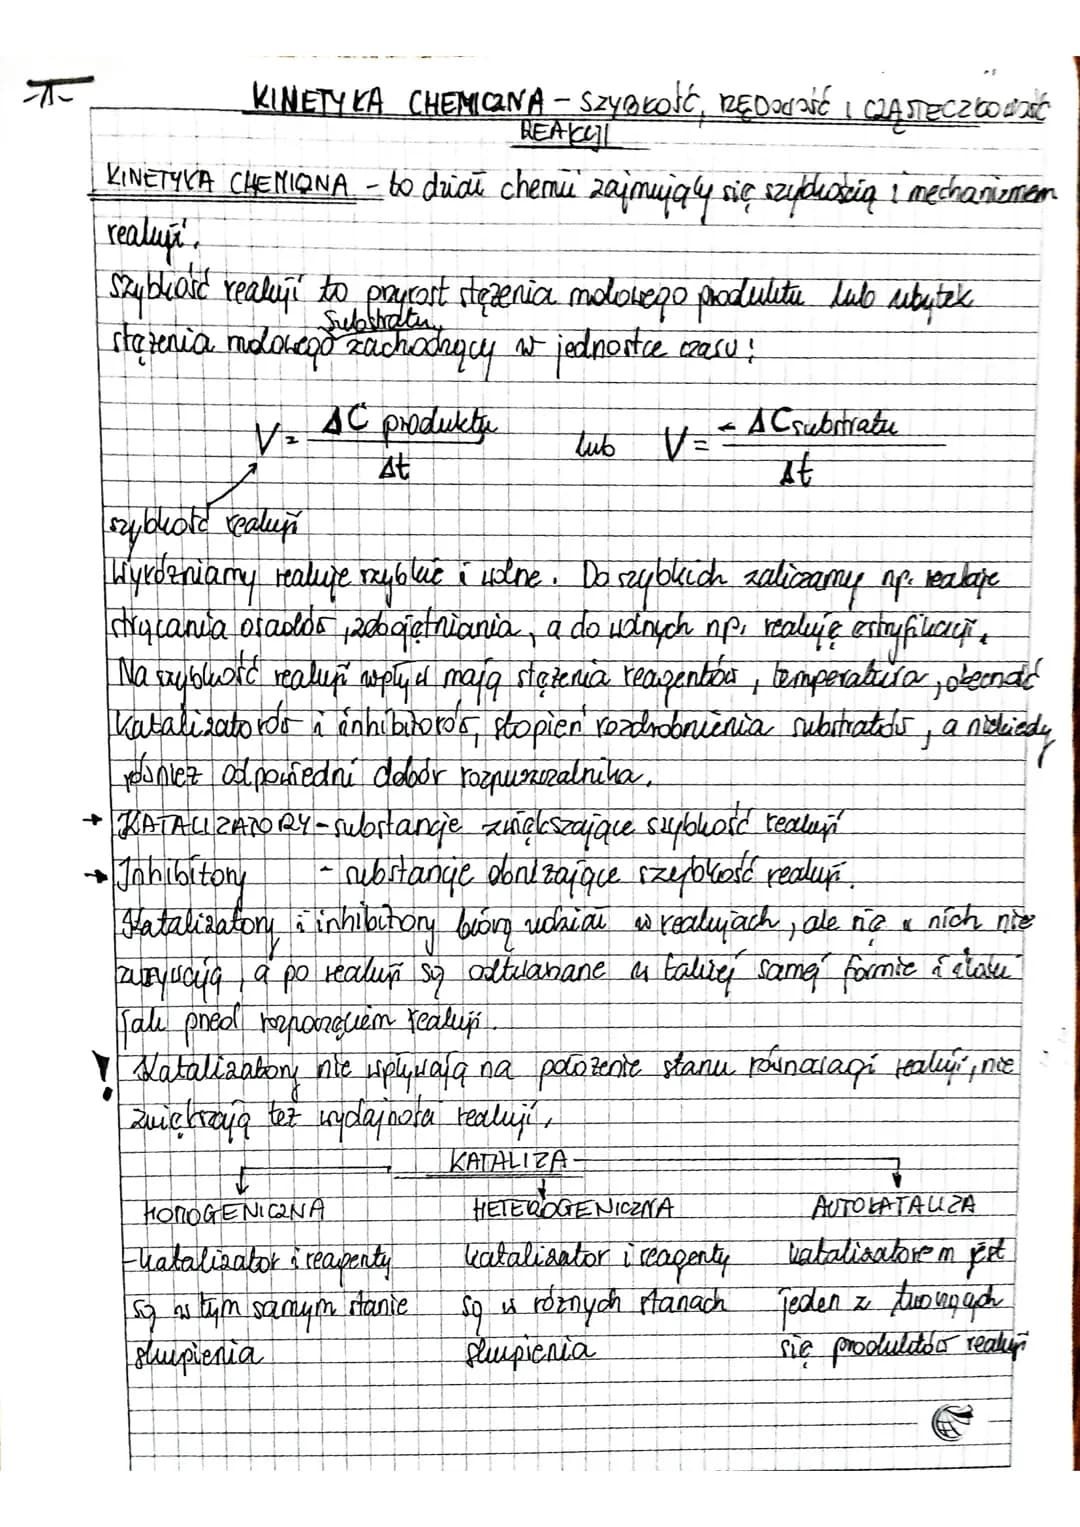 KINETYKA CHEMICZNA – SZYBKOŚĆ, RZĘDOWOŚĆ I CZĄSTECZKOWOŚĆ
REAKCJI
KINETYKA CHEMICZNA – to dział chemii zajmujący się szybkością i mechanizmem
reakcji.
Szybkość reakcji to przyrost stężenia molowego produktu lub ubytek
substratu,
stężenia molowego zachodzący w jednostce czasu:
V = ΔC produktu / Δt lub V = - ΔC substratu / Δt
szybkość reakcji
Wyróżniamy reakcje szybkie i wolne. Do szybkich zaliczamy np. reakcje
strącania osadów, zobojętniania, a do wolnych np. reakcję estryfikacji.
Na szybkość reakcji wpływ mają stężenia reagentów, temperatura, obecność
katalizatorów i inhibitorów, stopień rozdrobnienia substratów, a niekiedy
również odpowiedni dobór rozpuszczalnika.
→ KATALIZATORY – substancje zwiększające szybkość reakcji
→ Inhibitory – substancje obniżające szybkość reakcji.
Katalizatory i inhibitory biorą udział w reakcjach, ale się w nich nie
zużywają, a po reakcji są odtwarzane w takiej samej formie i ilości
jak przed rozpoczęciem reakcji.
! Katalizatory nie wpływają na położenie stanu równowagi reakcji, nie
zwiększają też wydajności reakcji.
KATALIZA
HOMOGENICZNA HETEROGENICZNA AUTOKATALIZA
- katalizator i reagenty katalizator i reagenty katalizatorem jest
są w tym samym stanie są w różnych stanach jeden z tworzących
skupienia skupienia się produktów reakcji